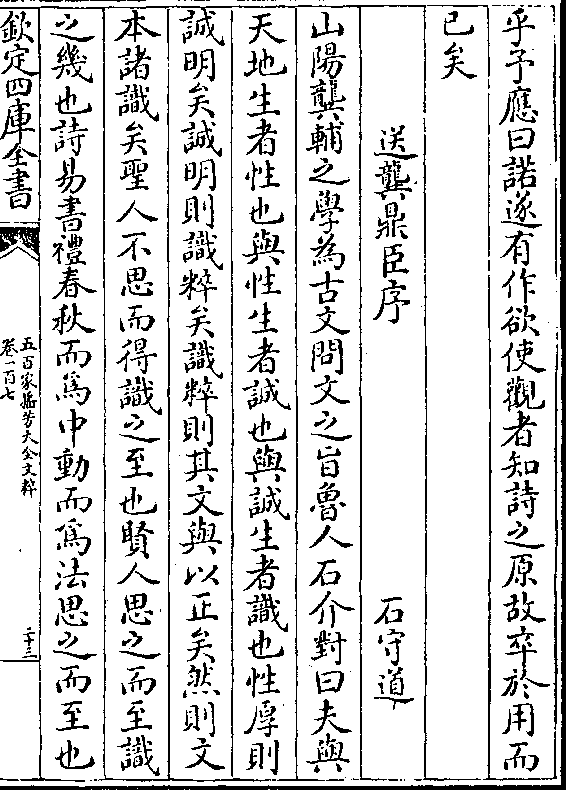 乎予應曰諾遂有作欲使觀者知詩之原故卒於用而
已矣
送龔鼎臣序
石守道
山陽龔輔之學為古文問文之旨魯人石介對曰夫與
天地生者性也與性生者誠也與誠生者識也性厚則
誠明矣誠明則識粹矣識粹則其文與以正矣然則文
本諸識矣聖人不思而得識之至也賢人思之而至識
之幾也詩易書禮春秋而爲中動而爲法思之而至也
欽定四庫全書
五百家播芳大全文粹
卷一百七
二十三